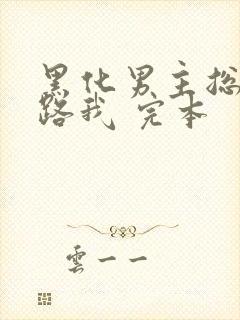 黑化男主总
路我 完本
雲一一